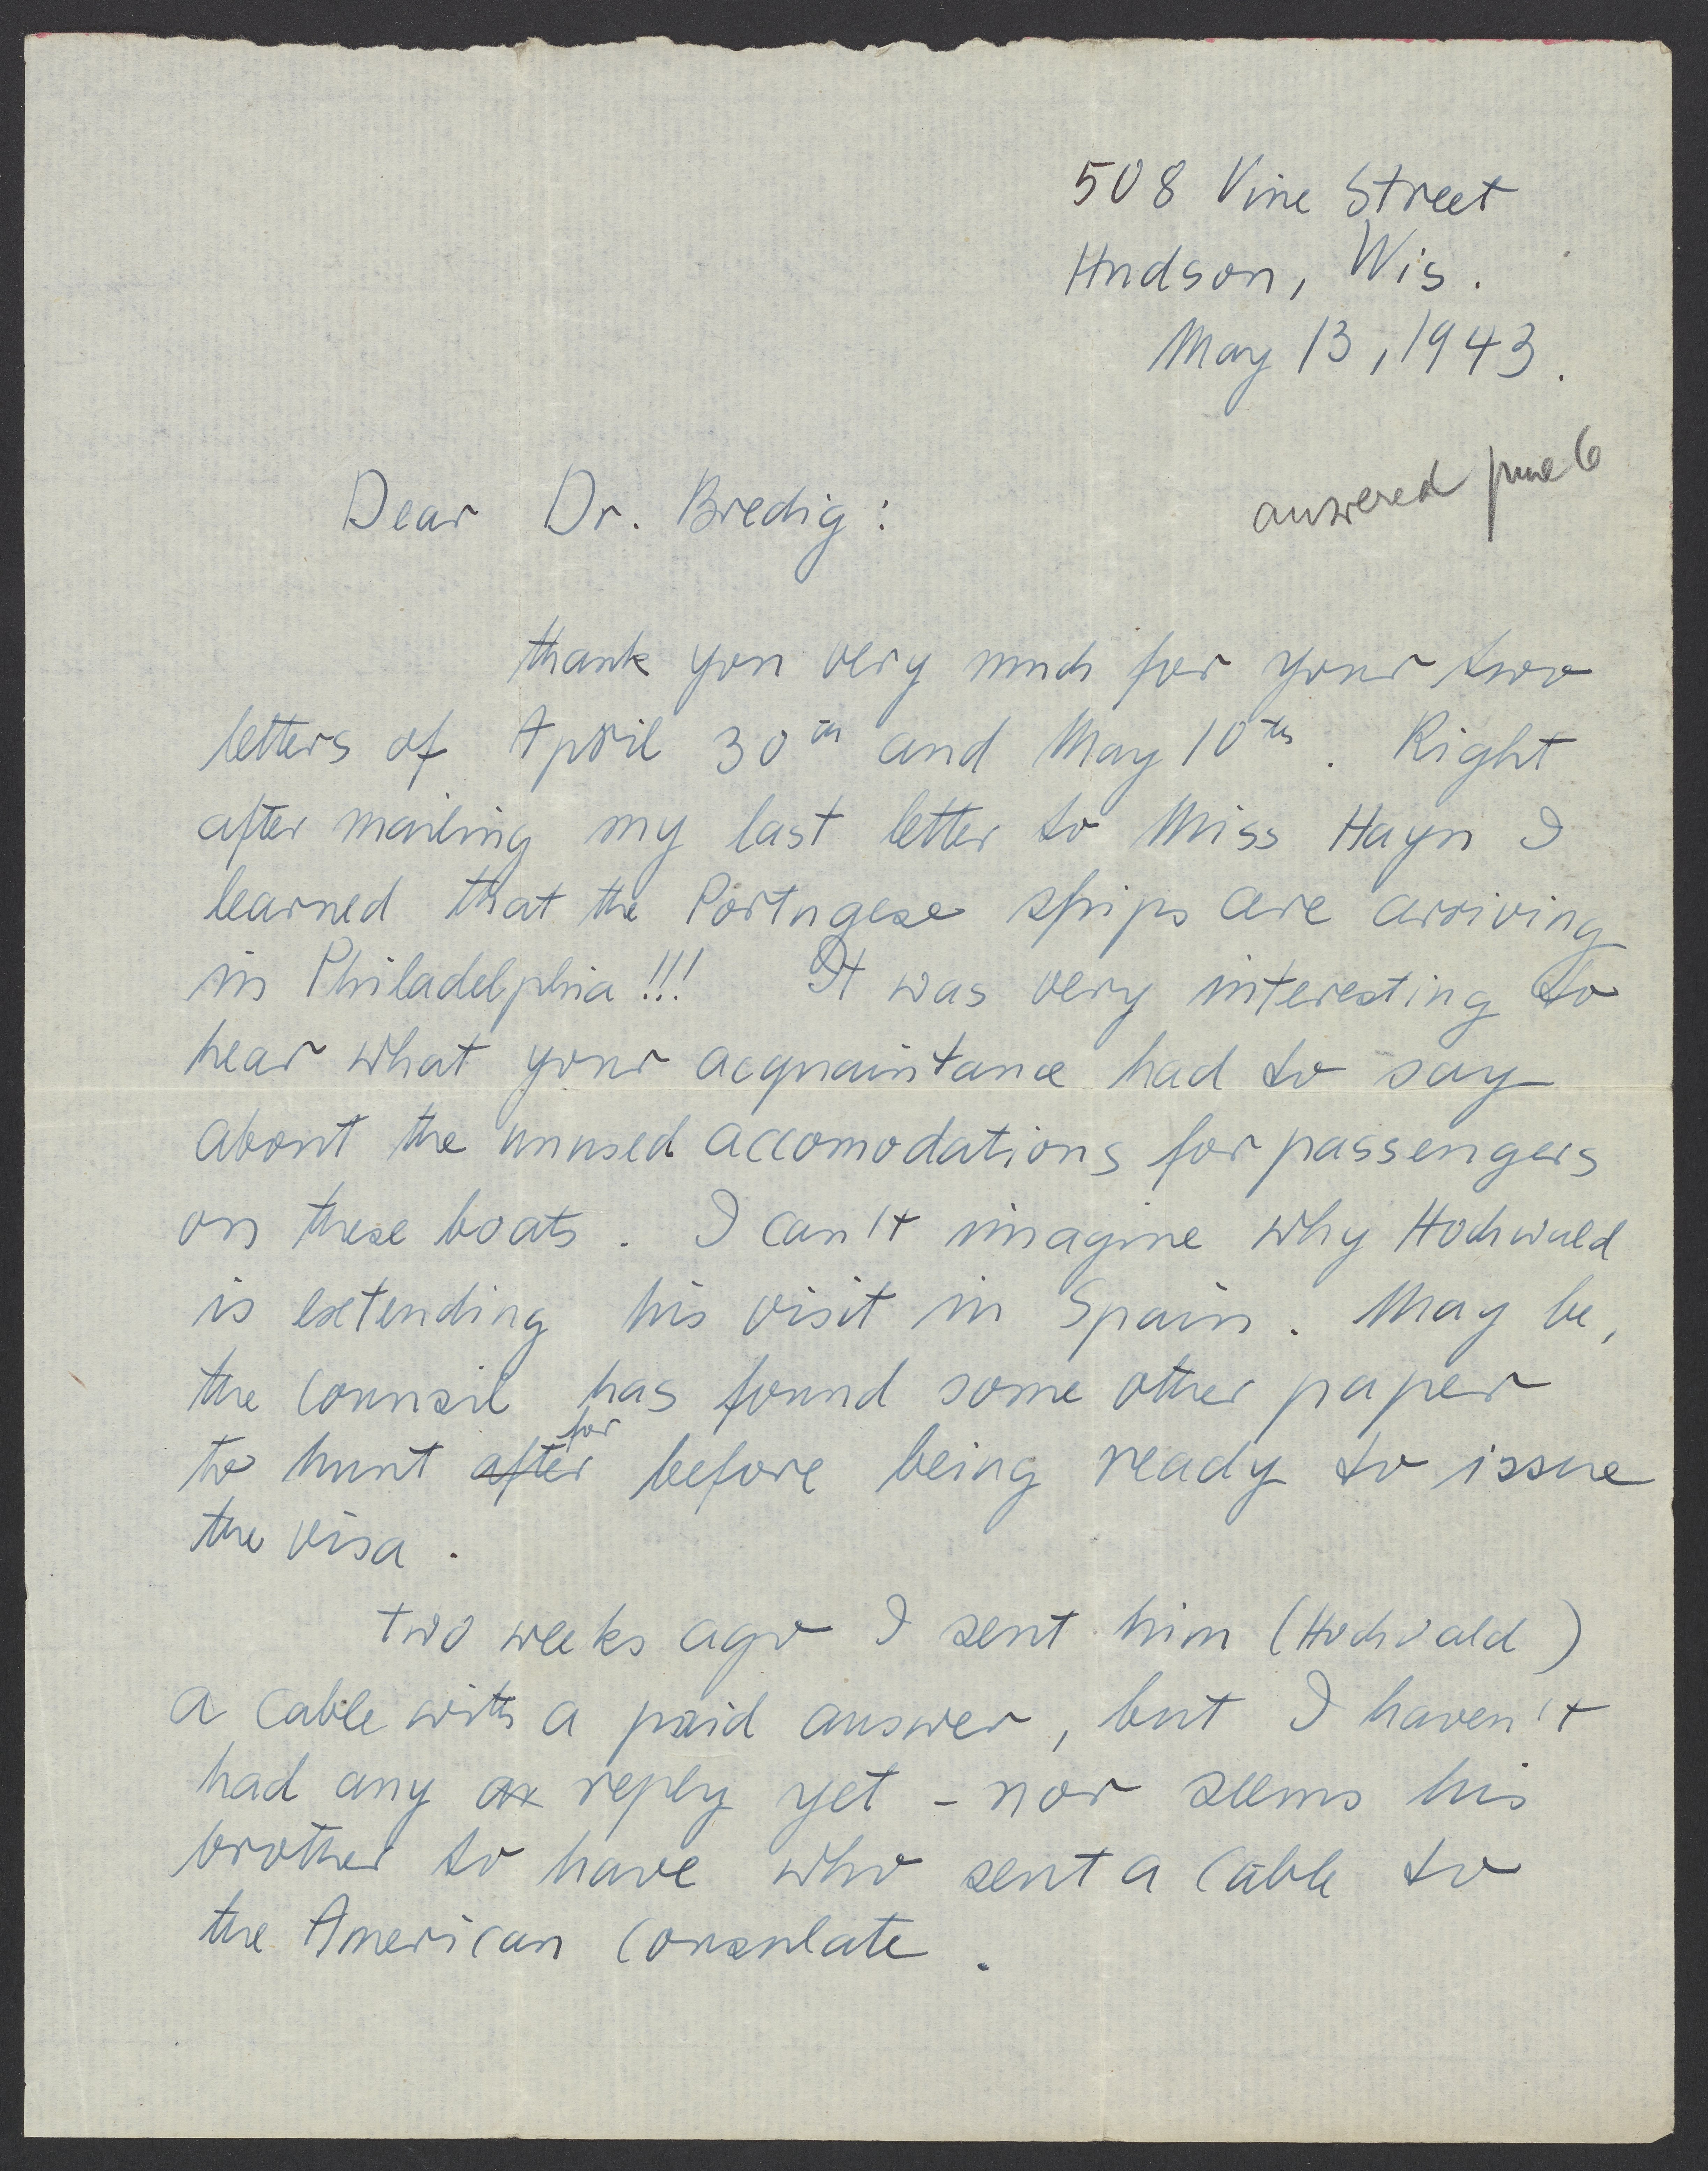 508 Vine Street
Hudson, Wis.
May 13, 1943.
answered June 6
Dear Dr. Bredig:
thank you very much for your two
letters of April 30th and May 10th. Right
after mailing my last letter to Miss Hayn I
learned that the Portugese ships are arriving
in Philadelphia!!! It was very interesting to
hear what your acquaintance had to say
about the unused accomodations for passengers
on these boats. I can't imagine why Hochwald
is extending his visit in Spain. May be,
the counsil has found some other paper
for
to hunt after before being ready to issue
the visa.
two weeks ago I sent him (Hochwald)
a cable with a paid answer, but I haven't
had any reply yet - nor seems his
brother to have who sent a cable to
the American Consulate.